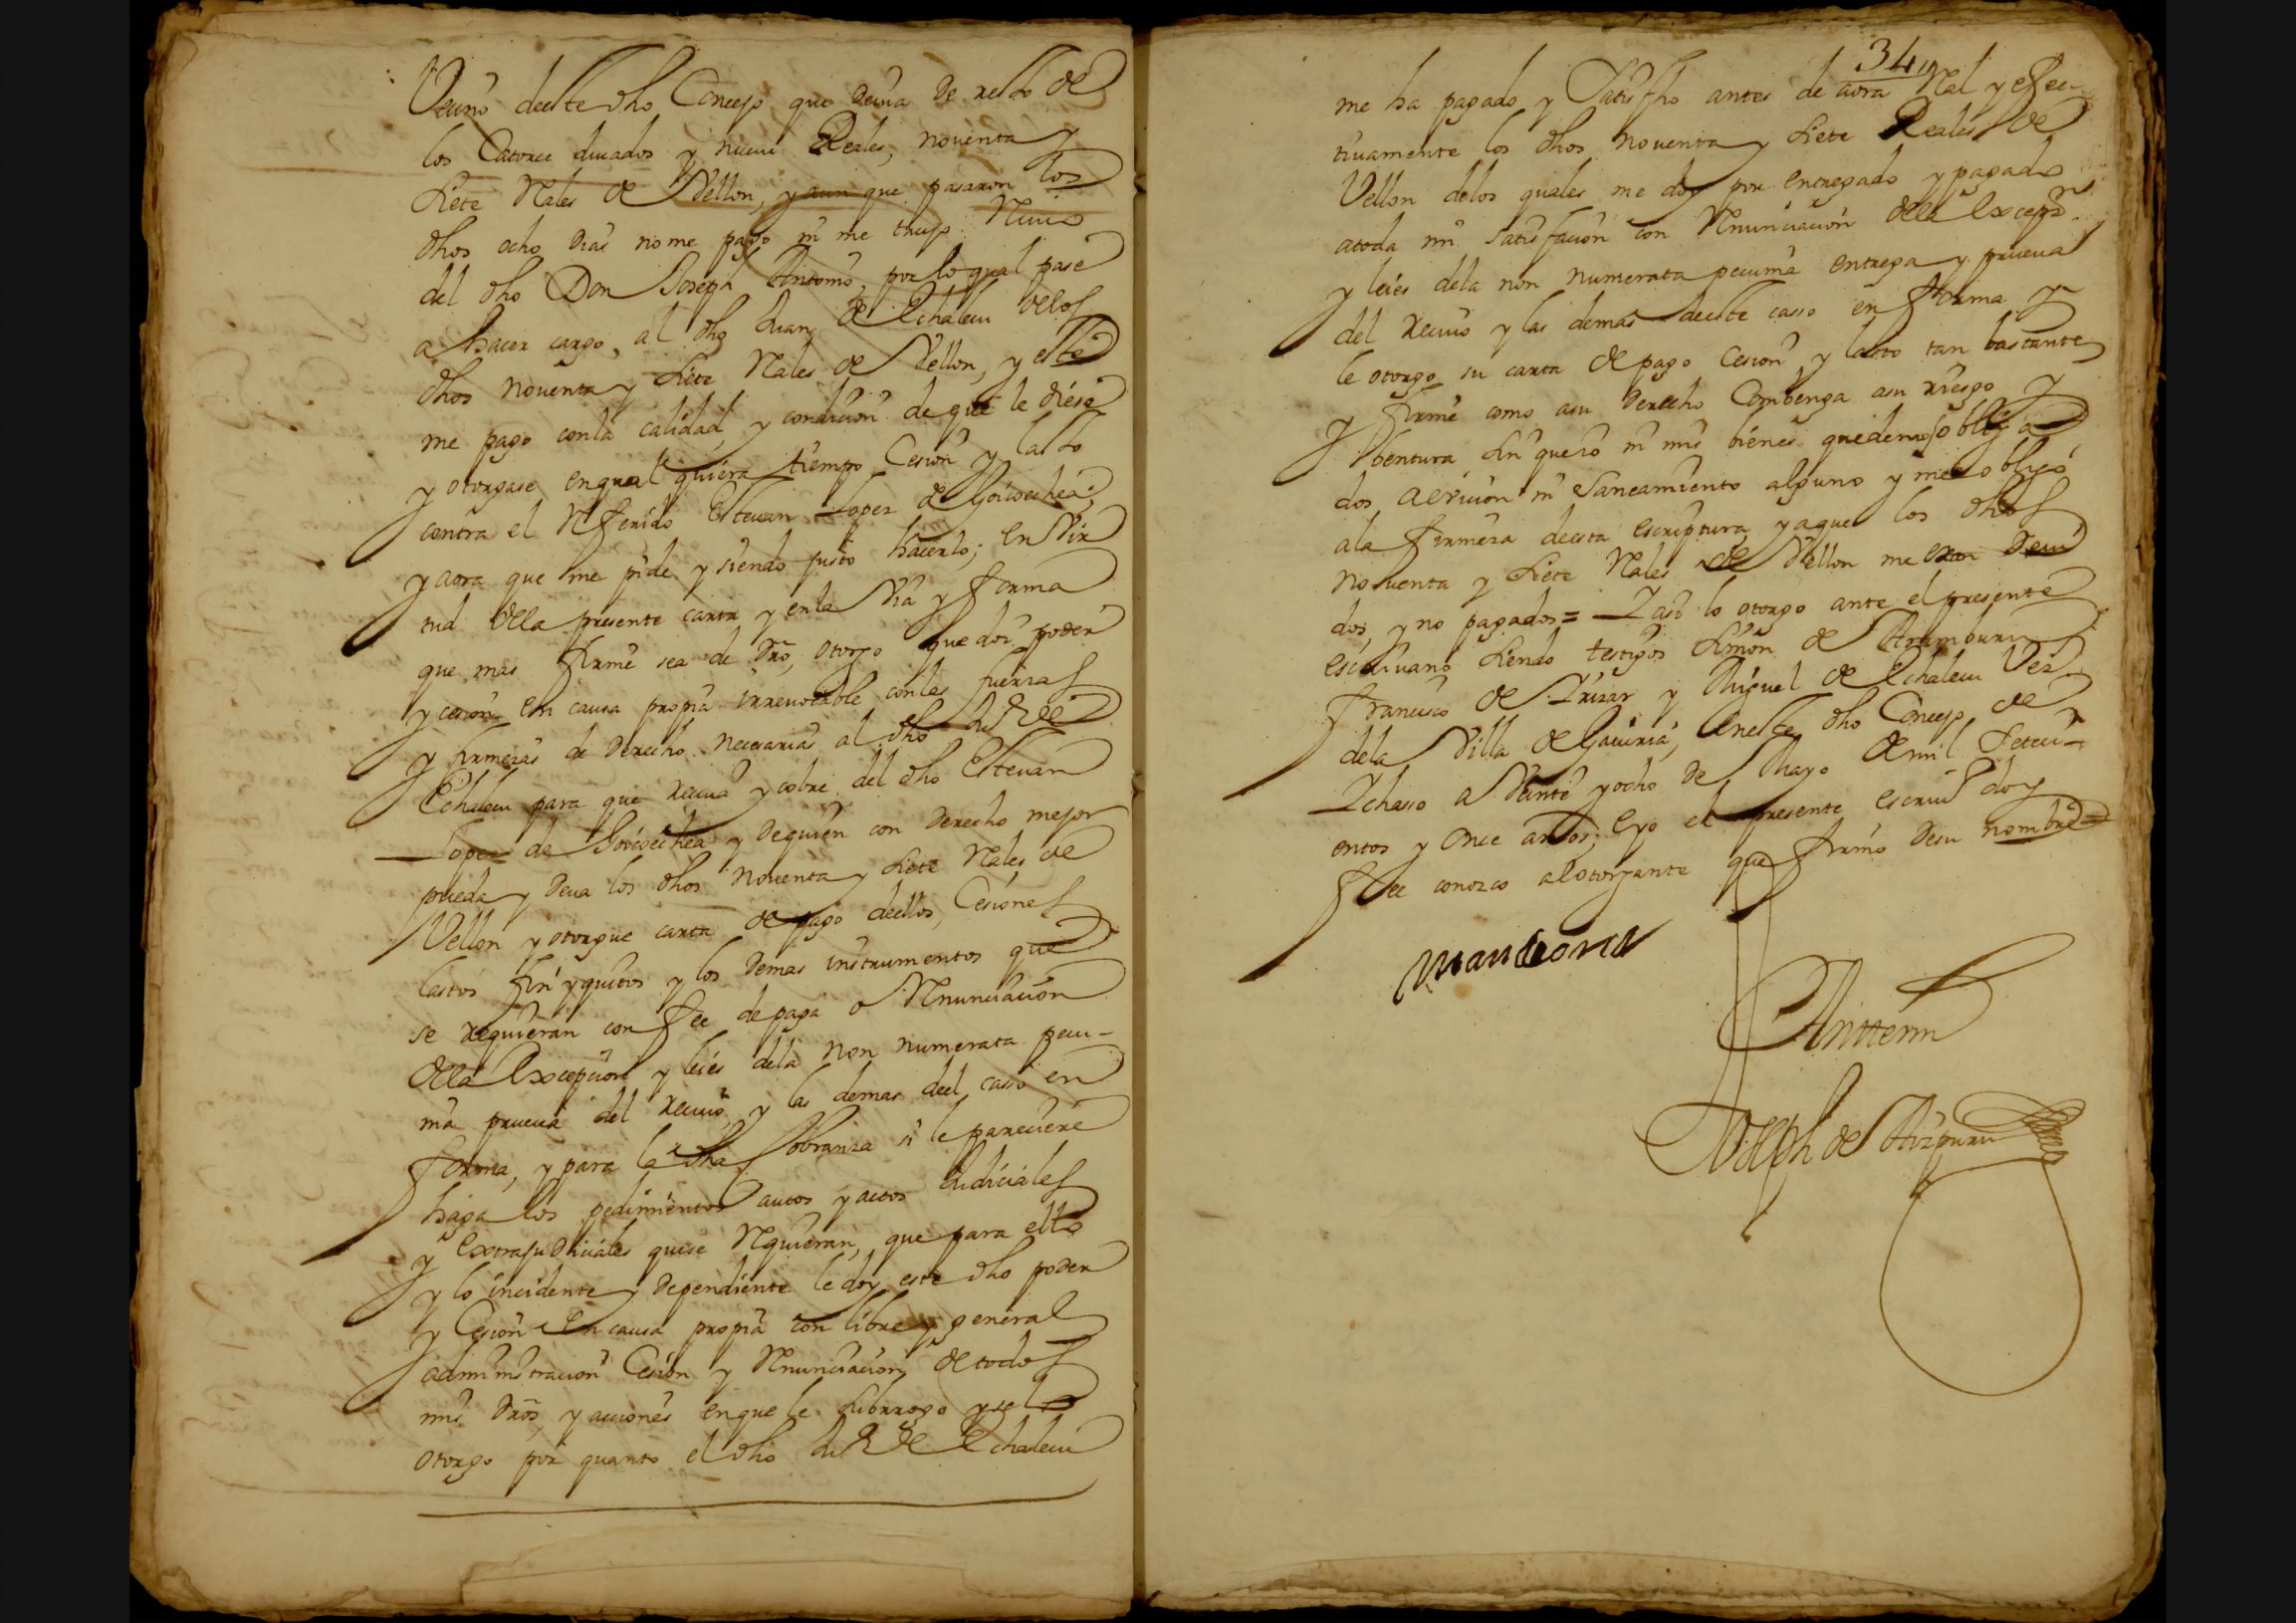 Vecino deeste dho Concejo que devia de resto de
los Catorce ducados y nueve Reales, noventa y
siete Rales de Vellon, y aun que pasaron los
dhos ocho dias no me pago ni me trujo Recivo
del dho Don Joseph Antonio, por lo qual pase
a hacer cargo, al dho Juan de Echalecu delos
dhos noventa y siete Rales de Vellon, y este
me pago conla calidad, y condicion de que le diese
y otorgase enqual quiera tiempo Cesion y lasto
contra el Referido Estevan Lopez de Goicoechea;
y aora que me pide, y siendo justo hacerlo; en Vir
tud della presente carta y enla Via y forma
que mas firme sea de dro, otorgo que doi poder
y cesion en causa propia irrevocable conlas fuerzas
y firmezas de derecho necesarias al dho Ju de
Echalecu para que reciva y cobre del dho Estevan
Lopez de Goicoechea y dequien con derecho mejor
pueda y deva los dhos noventa y siete Rales de
Vellon y otorgue carta de pago deellos, Cesiones
lastos fin y quitos y los demas instrumentos que
se requieran con fee de paga o Renunciacion
della Excepcion y leies dela non numerata pecu-
nia prueva del recivo, y las demas deel caso en
forma, y para la dha Cobranza si le pareciere
haga los pedimientos autos y actos Judiciales
y Extrajudiciales quese Requieran, que para ello
y lo incidente y dependiente le doy este dho poder
y Cesion en causa propia con libre y general
administracion Cesion y Renunciacion de todos
mis dros, y acciones enque le subrrogo y se lo
otorgo por quanto el dho Ju de Echalecu
34
me ha pagado y Satisfho antes de aora Ral y efec-
tivamente los dhos noventa y siete Reales de
Vellon delos quales me doy por entregado y pagado
atoda mi satisfacion con Renunciacion della Excepon
y leies dela non numerata pecunia entrega y prueva
del recivo y las demas deeste caso en forma y
le otorgo su carta de pago Cesion y lasto tan bastante
y firme como asu derecho Combenga asu riesgo y
bentura sin que io ni mis bienes quedemos obliga
dos a evicion ni Saneamiento alguno y me obligo
ala firmeza deesta escriptura y aque los dhos
noventa y siete Rales de Vellon me eran devi
dos, y no pagados = Y asi lo otorgo ante el presente
escrivano siendo testigos Simon de Aramburu
francisco de Yrizar y Miguel de Echalecu Vez.
dela Villa de Gaviria, Eneste dho Concejo de
Ychasso a Veinte y ocho de Mayo de mil seteci-
entos y Once años; E yo el presente escriv doy
fee conozco al otorgante que firmo de su nombre =
Antemi
Joseph de Aizpuru